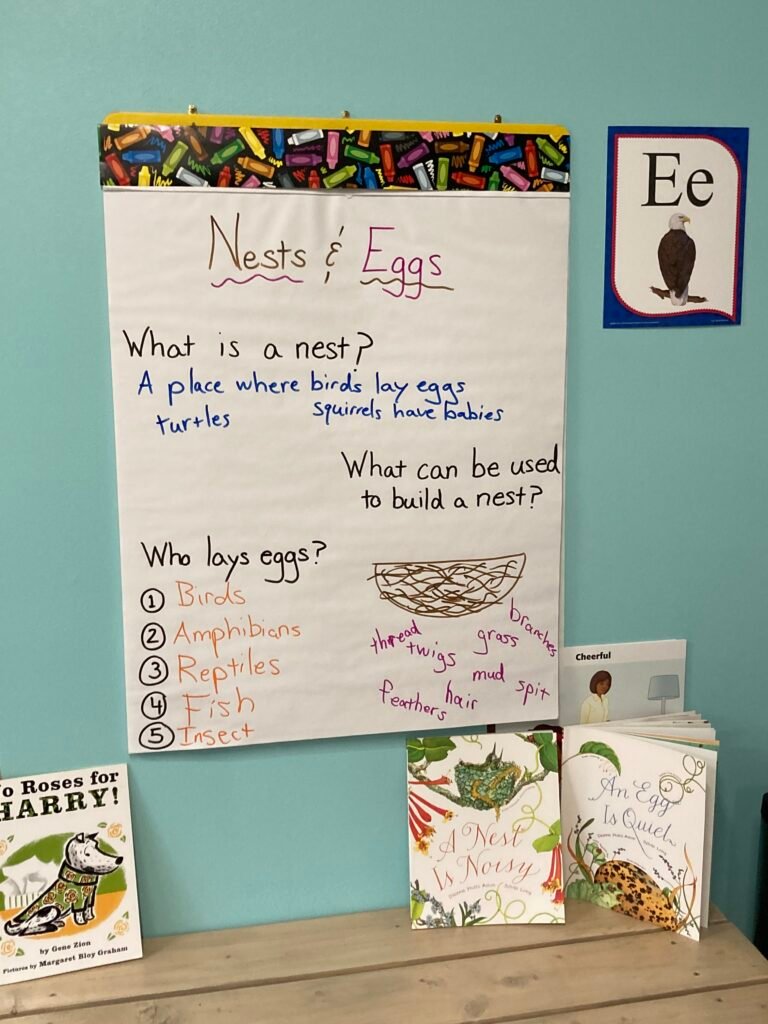 Nests & Eggs
What is a nest?
A place where birds lay eggs
turtles squirrels have babies
What can be used
to build a nest?
Who lays eggs?
① Birds
② Amphibians
③ Reptiles
④ Fish
⑤ Insect
branches
thread
grass
twigs
mud
spit
hair
feathers
Ee
Cheerful
o Roses for
HARRY!
by Gene Zion
Pictures by Margaret Bloy Graham
A Nest
Is Noisy
Dianna Hutts Aston Sylvia Long
An Egg
Is Quiet
Dianna Hutts Aston Sylvia Long